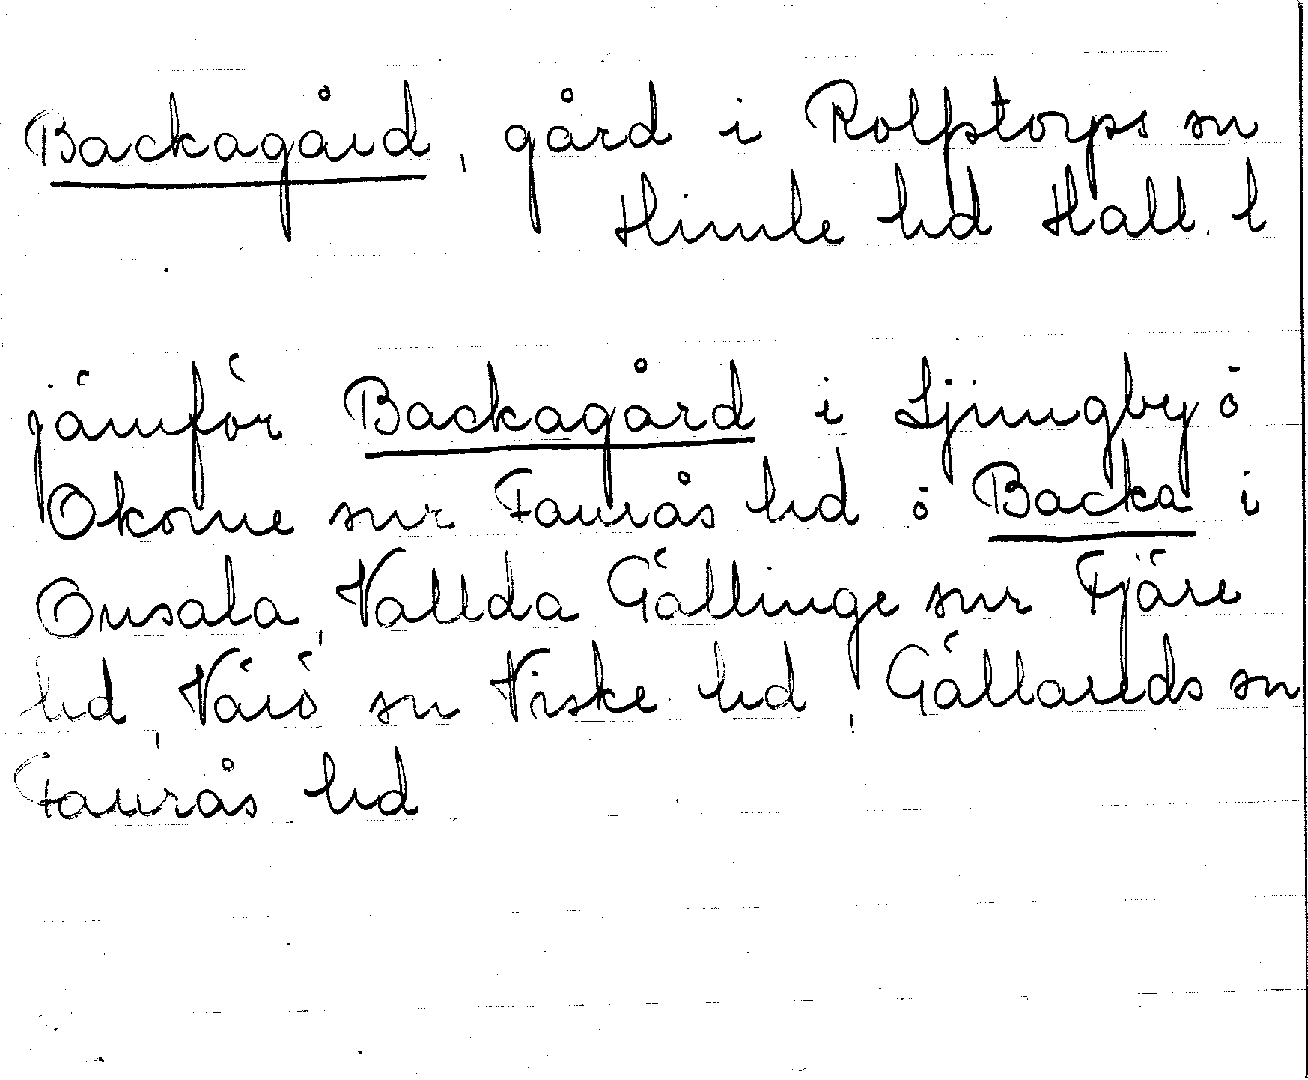 Backagård, gård i Rolfstorps sn
Himle hd Hall. l
jämför Backagård i Ljungby ö
Okome snr Faurås hd ö Backa i
Onsala, Vallda Gällinge snr Fjäre
hd, Värö sn Viske hd, Gällareds sn
Faurås hd